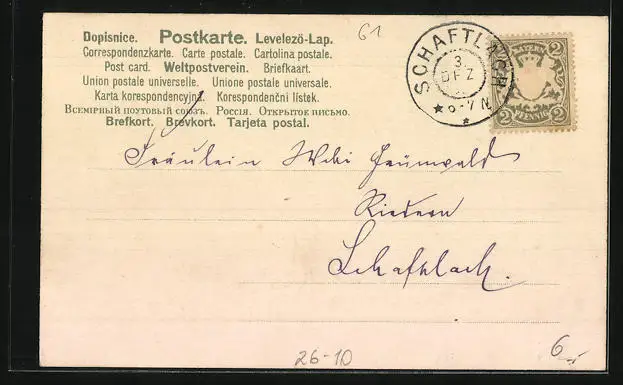 Dopisnice. Postkarte. Levelező-Lap.
Correspondenzkarte. Carte postale. Cartolina postale.
Post card. Weltpostverein. Briefkaart.
Union postale universelle. Unione postale universale.
Karta korespondencyjna. Korespondenční lístek.
Всемірный почтовый союзъ. Россія. Открытое письмо.
Brefkort. Brevkort. Tarjeta postal.
61
SCHAFTLACH
3.
DEZ
BAYERN
2 2
PFENNIG
Fräulein Grünwald
Riedern
Schaftlach.
26-10
6